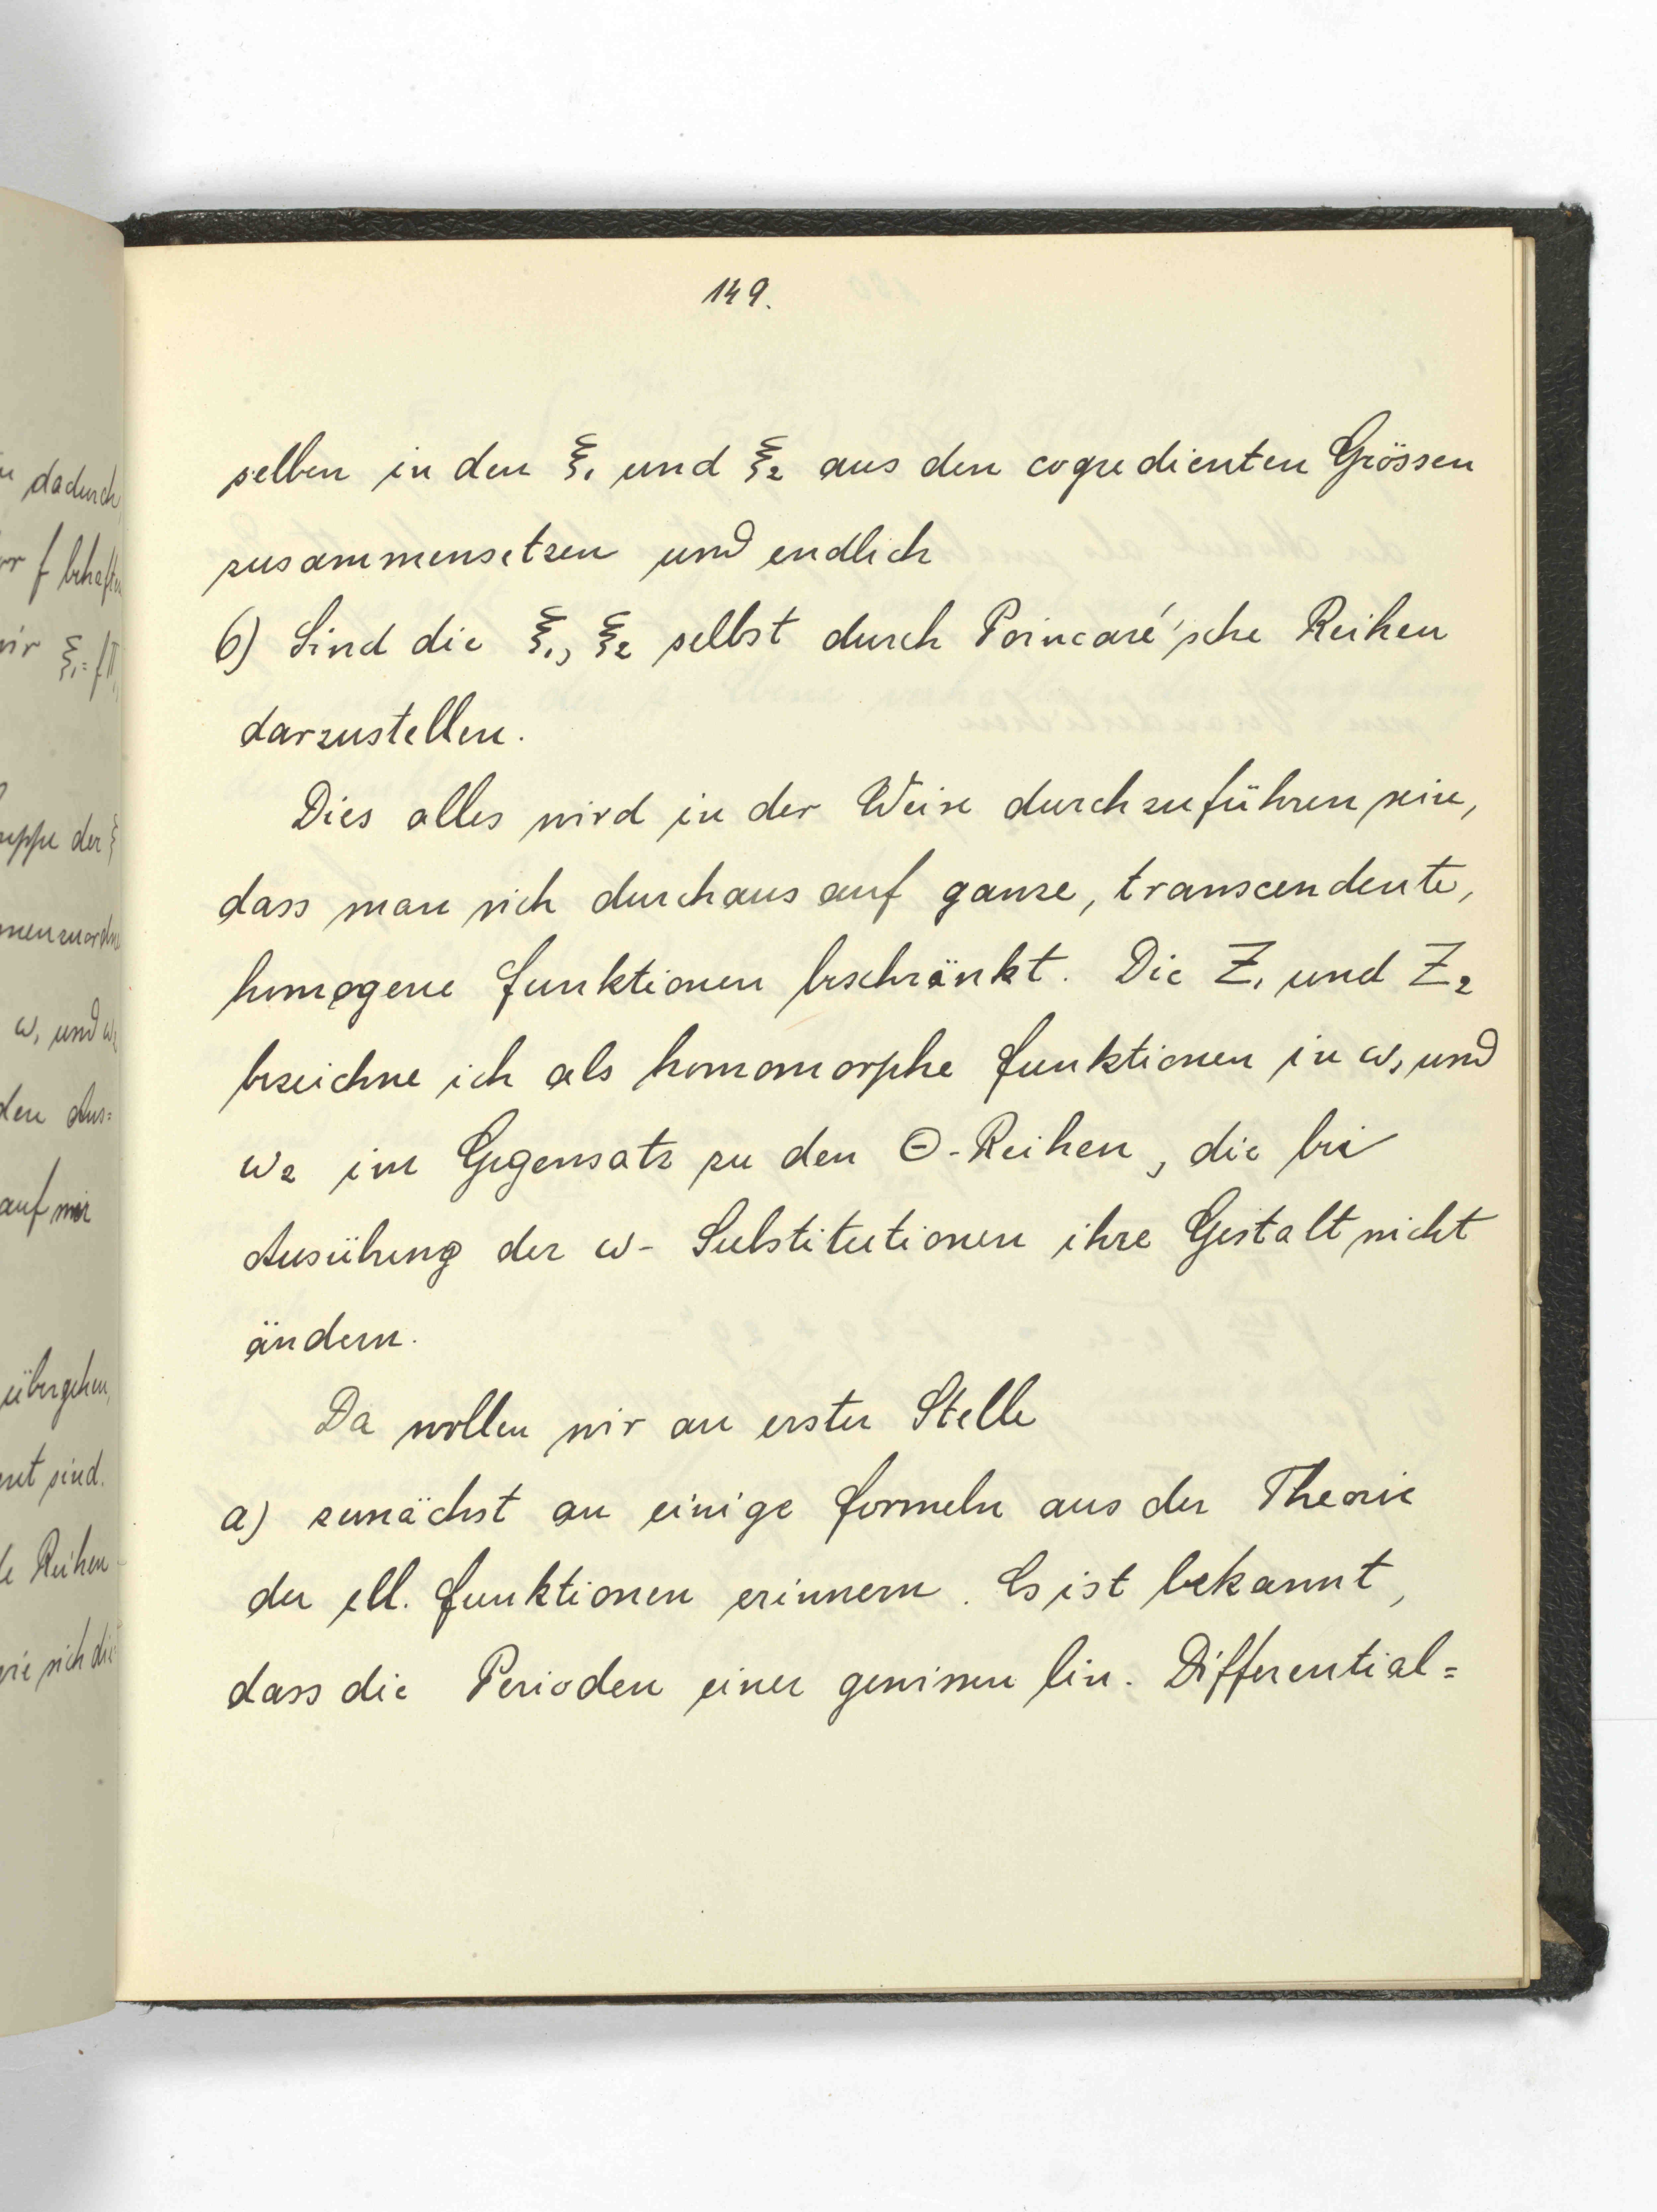 149.
selben in den ξ₁ und ξ₂ aus den cogredienten Grössen
zusammensetzen und endlich
6) Sind die ξ₁, ξ₂ selbst durch Poincaré'sche Reihen
darzustellen.
Dies alles wird in der Weise durchzuführen sein,
dass man sich durchaus auf ganze, transcendente,
homogene Funktionen beschränkt. Die Z₁ und Z₂
bezeichne ich als homomorphe Funktionen in ω₁ und
ω₂ im Gegensatz zu den Θ-Reihen, die bei
Ausübung der ω- Substitutionen ihre Gestalt nicht
ändern.
Da wollen wir an erster Stelle
a) zunächst an einige Formeln aus der Theorie
der ell. Funktionen erinnern. Es ist bekannt,
dass die Perioden einer gewissen lin. Differential=
dadurch
ξ₁=
der ξ
ω₁ und
auf wir
übergehen,
sind.
Reihen
sich die